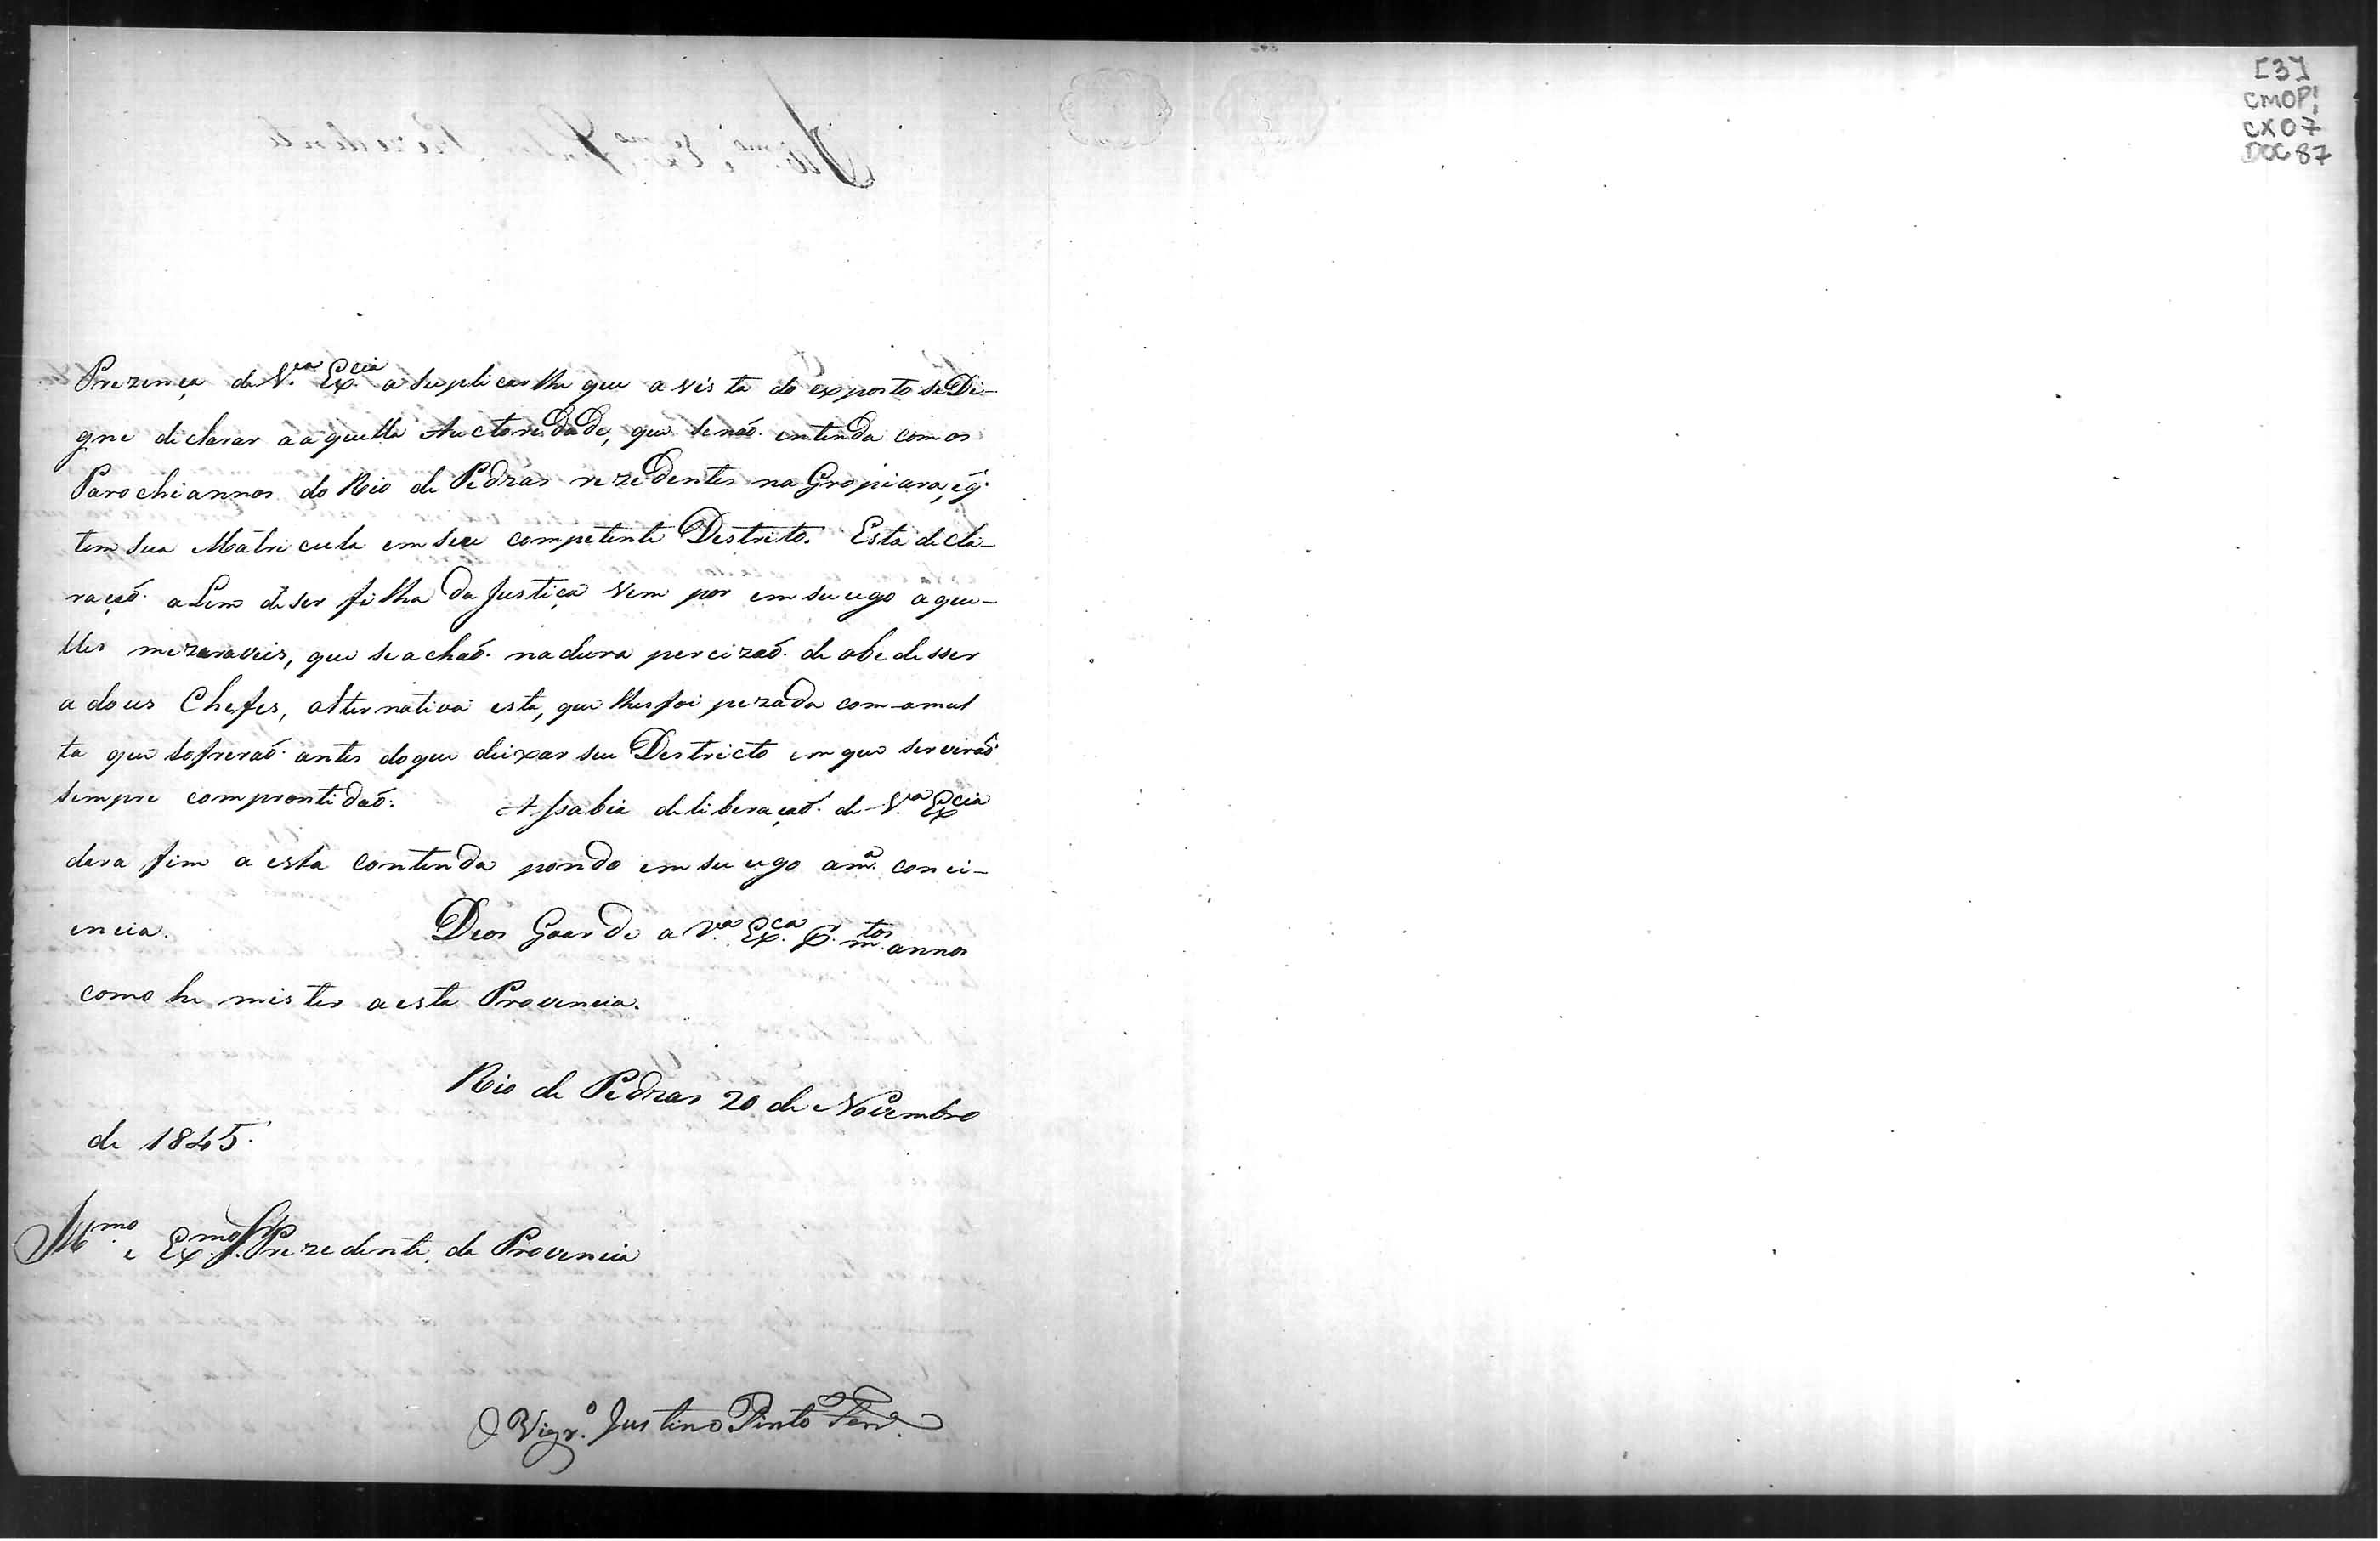 Prezença de V.ª Ex.cia a suplicar lhe que a vista do exposto se Di-
gne declarar a aquella Auctoredade, que se não entenda com os
Parochiannos do Rio de Pedras rezedentes na Gropiara, e q.
tem sua Matricula em seu competente Destrito. Esta decla-
ração alem de ser filha da Justiça vem por em sucego aque-
lles mezeraveis, que se achão na dura percizão de obedesser
a dous Chefes, alternativa esta, que lhes foi pezada com a mul
ta que sofrerão antes do que deixar seu Destricto em que servirão
sempre com prontidão. A ssabia deliberação de V.ª Ex.cia
dara fim a esta contenda pondo em sucego a m.ª conci-
encia. Deos Goarde a V.ª Ex.ca P.r m.tos annos
como he mister a esta Provincia.
Rio de Pedras 20 de Novembro
de 1845.
Ill.mo e Ex.mo Sr. Prezedente da Provincia
O Vigr.º Justino Pinto Ferr.ª
[3]
CMOP!
CX 07
DOC 87